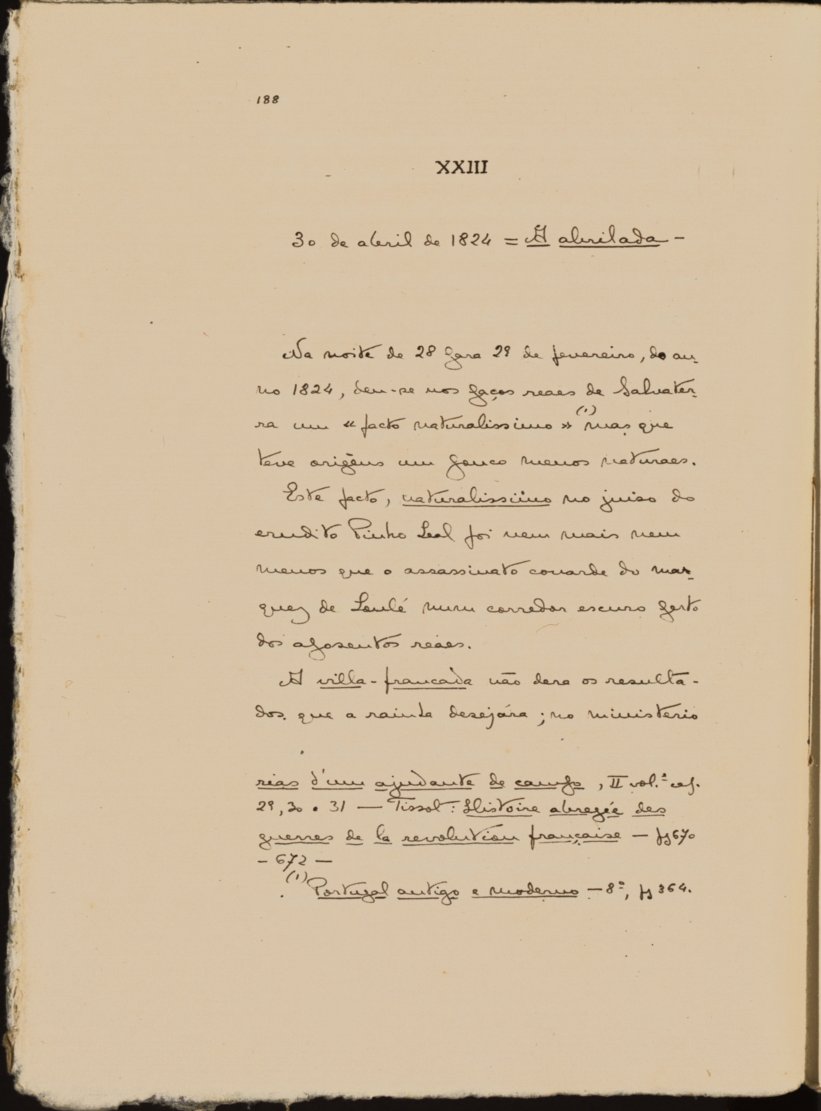 188
XXIII
30 de abril de 1824 = A abrilada -
Na noite de 28 para 29 de fevereiro, do an-
no 1824, deu-se nos paços reaes de Salvater-
ra um « facto naturalissimo » (1) mas que
teve origens um pouco menos naturaes.
Este facto, naturalissimo no juiso do
erudito Pinho Leal foi nem mais nem
menos que o assassinato covarde do mar-
quez de Loulé num corredor escuro perto
dos aposentos reaes.
A villa-francada não dera os resulta-
dos que a rainha desejára; no ministerio
rias d'um ajudante de campo, II vol.º cap.
29, 30 e 31 — Tissot: Histoire abregée des
guerres de la revolution française — pg 670
- 672 —
(1) Portugal antigo e moderno — 8º, pg 364.